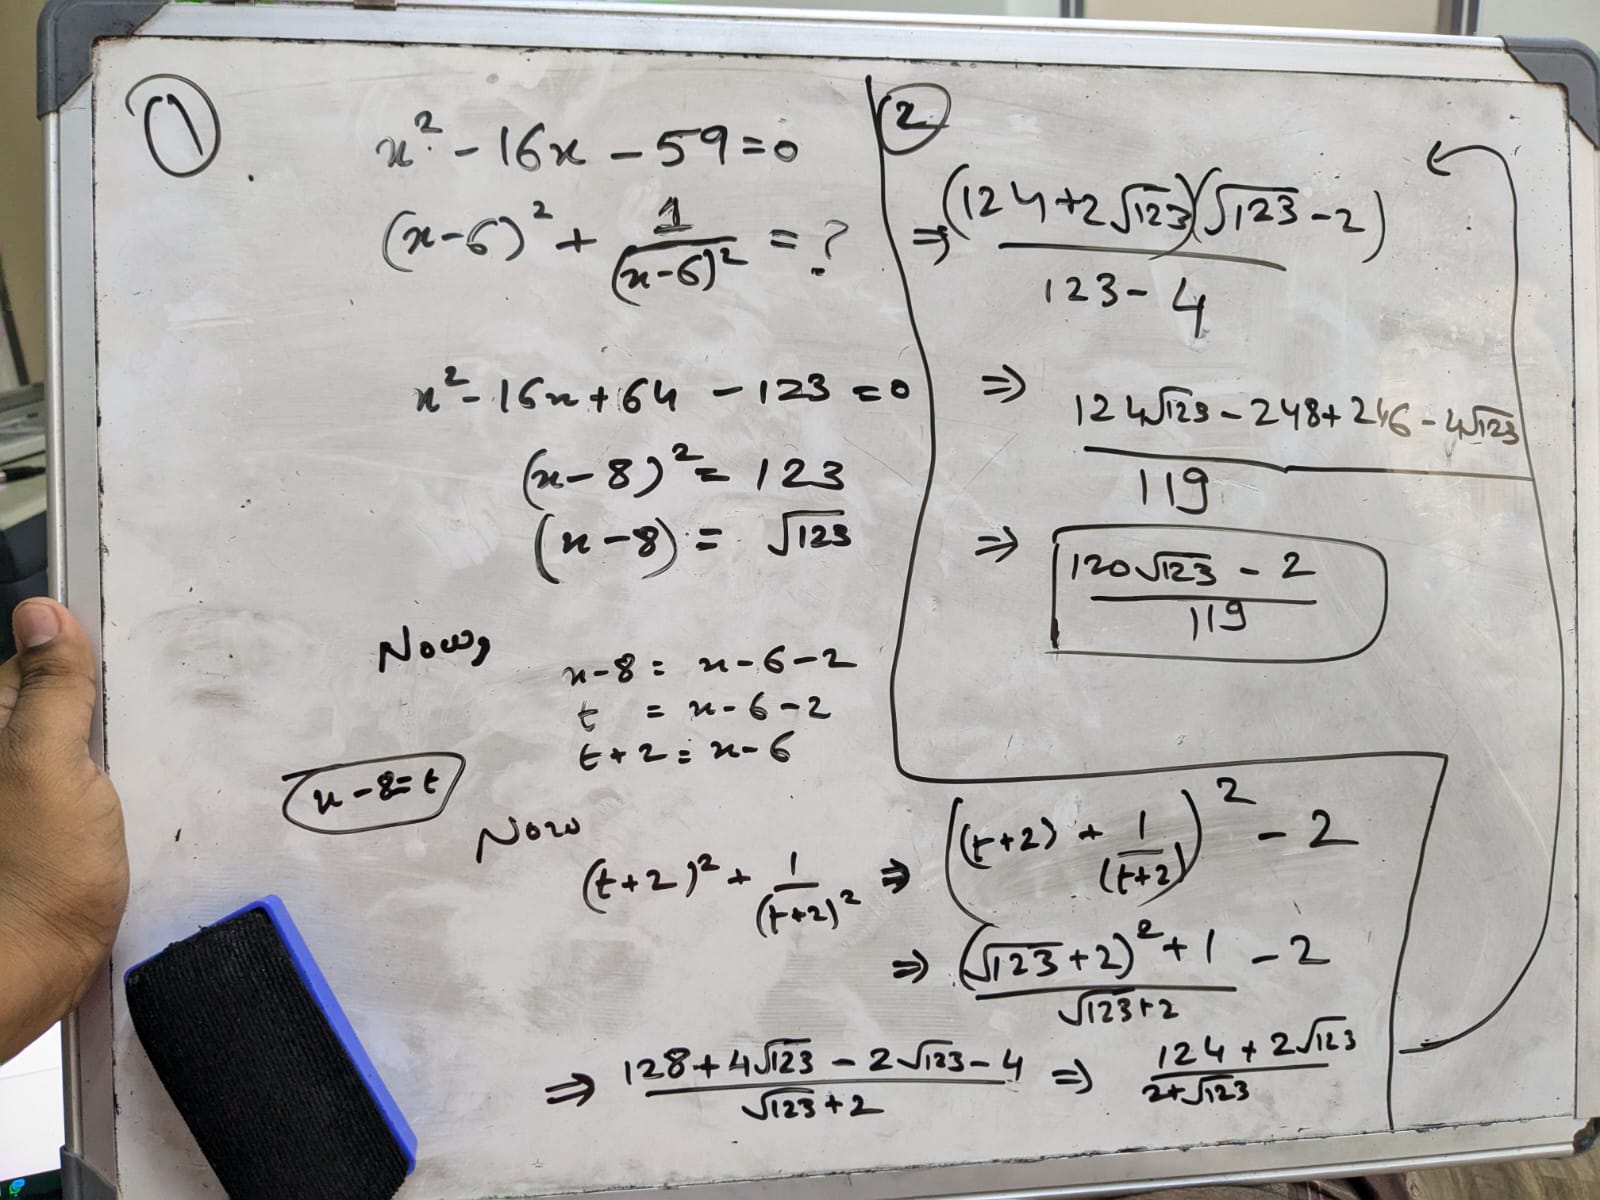 ①
x² - 16x - 59 = 0
(x-6)² + 1/(x-6)² = ?
x² - 16x + 64 - 123 = 0
(x-8)² = 123
(x-8) = √123
Now,
x-8 = x-6-2
t = x-6-2
t+2 = x-6
x-8=t
Now
(t+2)² + 1/(t+2)² ⇒ ((t+2) + 1/(t+2))² - 2
⇒ ((√123+2)² + 1)/(√123+2) - 2
⇒ (128+4√123 - 2√123 - 4)/(√123+2) ⇒ (124+2√123)/(2+√123)
②
⇒ (124+2√123)(√123-2)/(123-4)
⇒ (124√123 - 248 + 246 - 4√123)/119
⇒ (120√123 - 2)/119